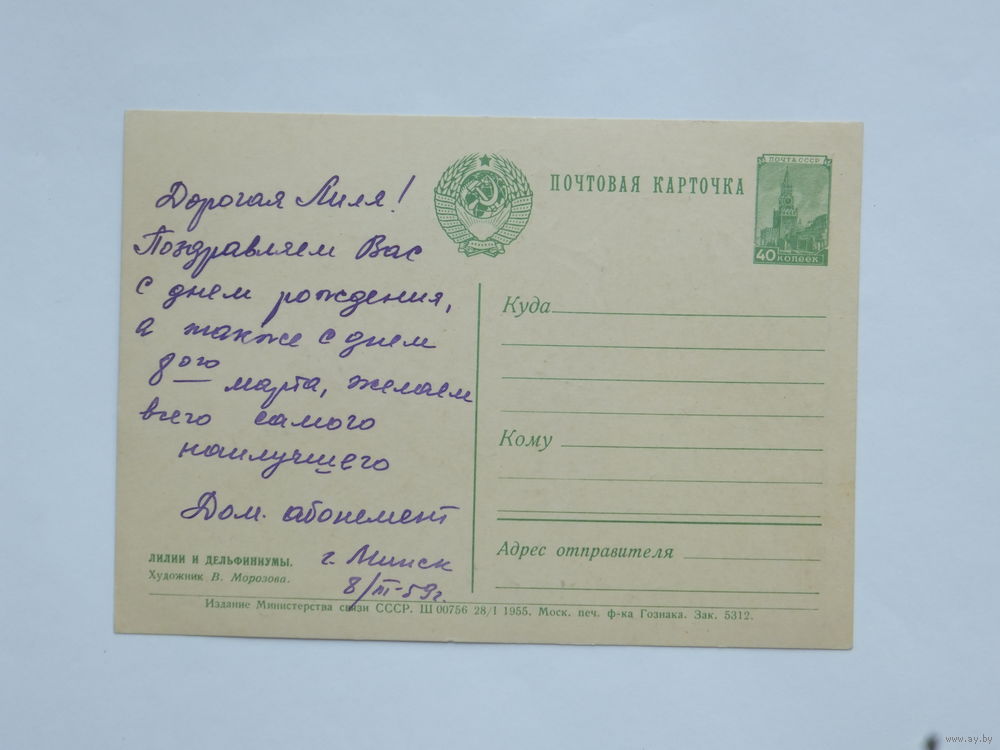 Дорогая Лиля!
Поздравляем Вас
с днем рождения,
а также с днем
8ого марта, желаем
всего самого
наилучшего
Дом. абонемент
г. Минск
8/III-59г.
ЛИЛИИ И ДЕЛЬФИНИУМЫ.
Художник В. Морозова.
ПОЧТОВАЯ КАРТОЧКА
ПОЧТА СССР
40 КОПЕЕК
Куда
Кому
Адрес отправителя
Издание Министерства связи СССР. Ш 00756 28/I 1955. Моск. печ. ф-ка Гознака. Зак. 5312.
www.ay.by